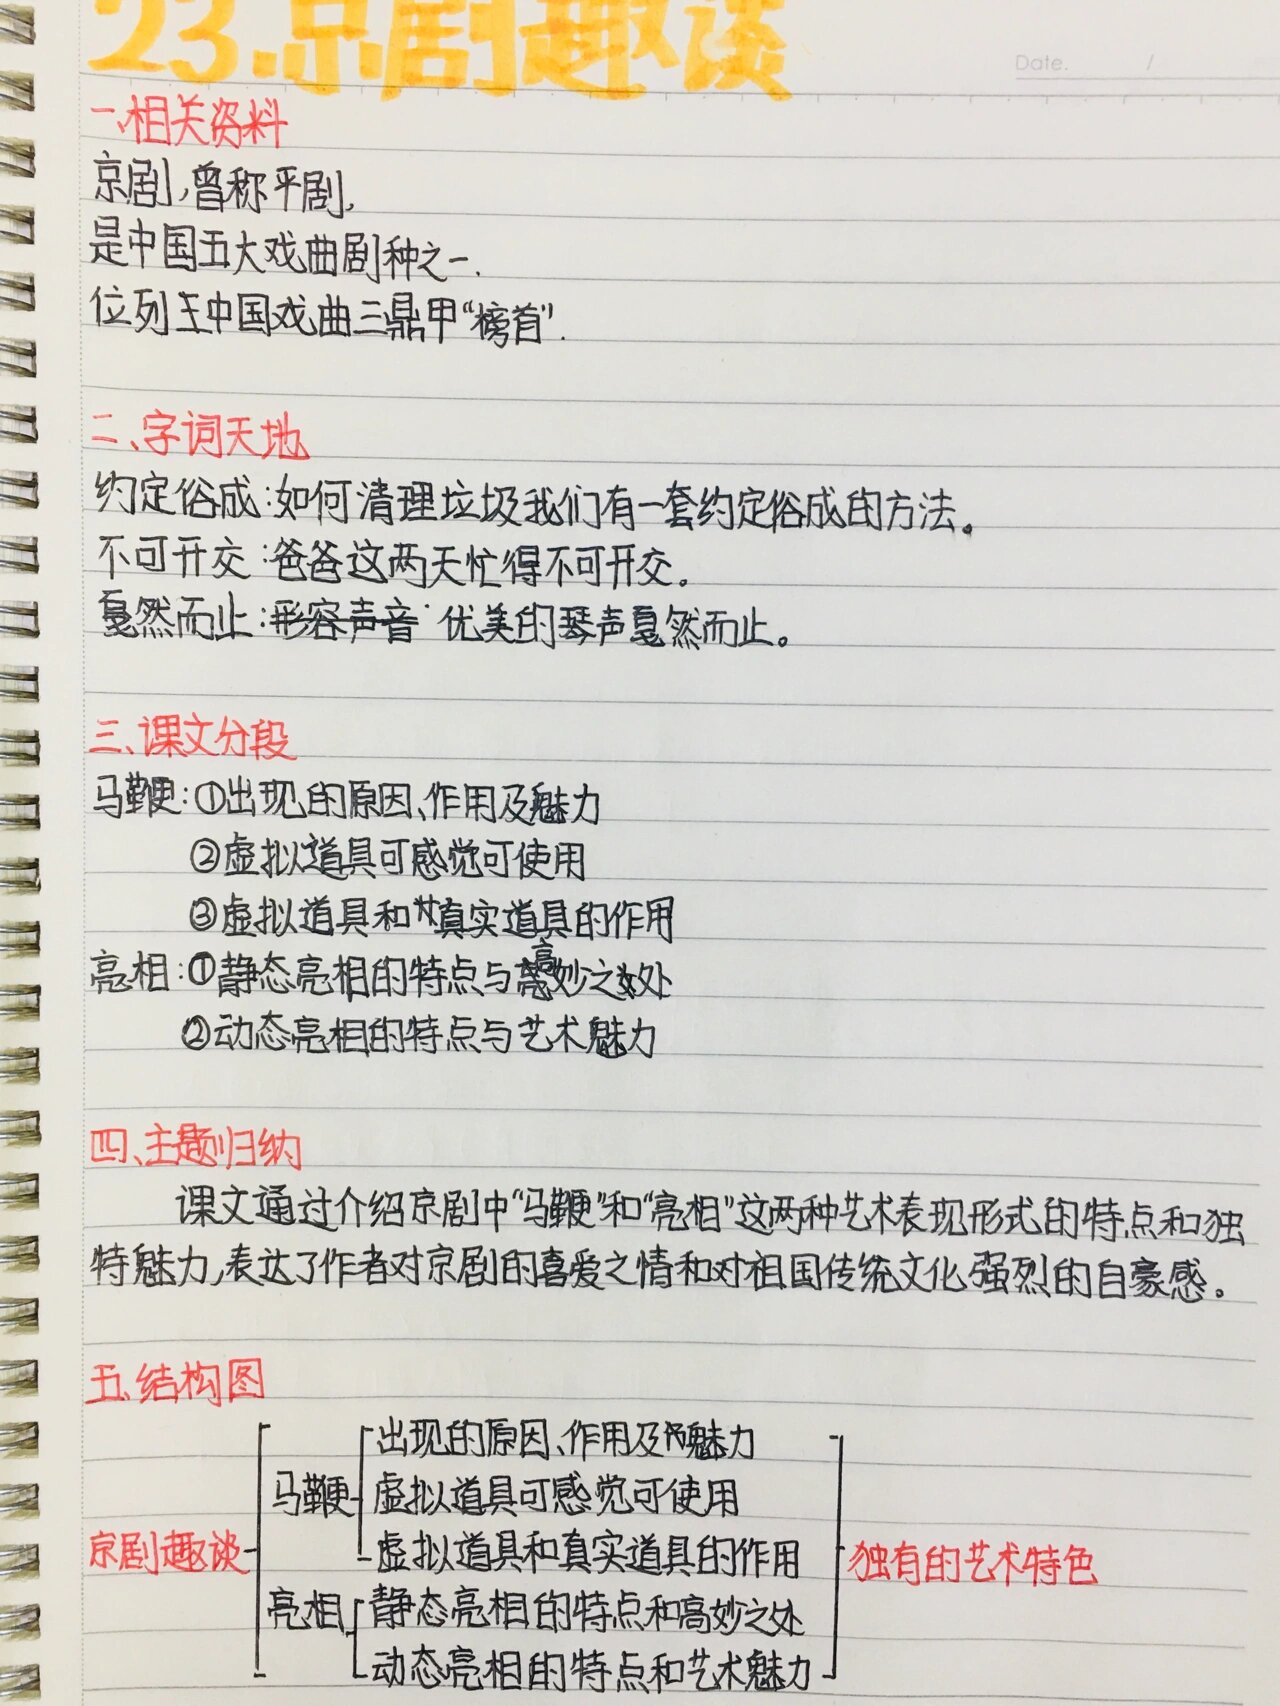 23.京剧趣谈
Date. /
一、相关资料
京剧,曾称平剧,
是中国五大戏曲剧种之一.
位列王中国戏曲三鼎甲“榜首”.
二、字词天地
约定俗成:如何清理垃圾我们有一套约定俗成的方法。
不可开交:爸爸这两天忙得不可开交。
戛然而止:形容声音 优美的琴声戛然而止。
三、课文分段
马鞭:①出现的原因、作用及魅力
②虚拟道具可感觉可使用
③虚拟道具和真实道具的作用
亮相:①静态亮相的特点与高妙之处
②动态亮相的特点与艺术魅力
四、主题归纳
课文通过介绍京剧中“马鞭”和“亮相”这两种艺术表现形式的特点和独
特魅力,表达了作者对京剧的喜爱之情和对祖国传统文化强烈的自豪感。
五、结构图
出现的原因、作用及魅力
马鞭 虚拟道具可感觉可使用
京剧趣谈 虚拟道具和真实道具的作用 独有的艺术特色
亮相 静态亮相的特点和高妙之处
动态亮相的特点和艺术魅力